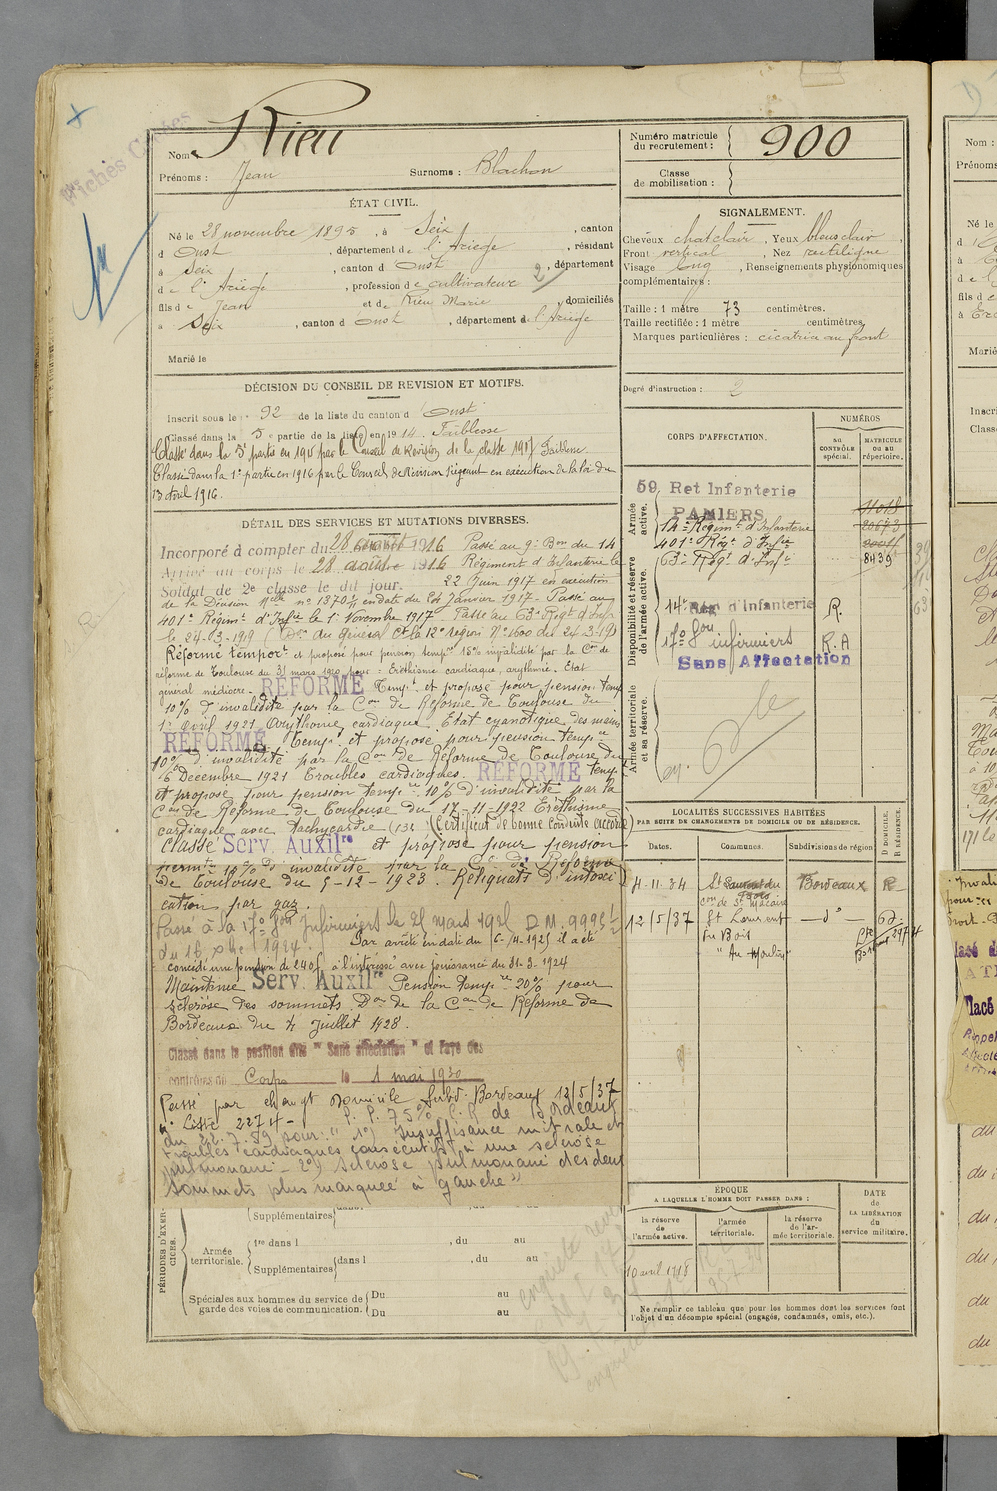 Fichés Cartes
Nom : Rieu
Prénoms : Jean Surnoms : Blachon
Numéro matricule
du recrutement : 900
Classe
de mobilisation :
ÉTAT CIVIL.
Né le 28 novembre 1895, à Seix, canton
d Oust, département de l'Ariège, résidant
à Seix, canton d Oust, département
de l'Ariège, profession de cultivateur 2
fils de Jean et de Rieu Marie domiciliés
à Seix, canton d Oust, département de l'Ariège
Marié le
SIGNALEMENT.
Cheveux chat clair, Yeux bleus clair,
Front vertical, Nez rectiligne
Visage long, Renseignements physionomiques
complémentaires :
Taille : 1 mètre 73 centimètres.
Taille rectifiée : 1 mètre centimètres.
Marques particulières : cicatrice au front
Degré d'instruction : 2
DÉCISION DU CONSEIL DE REVISION ET MOTIFS.
Inscrit sous le n° 92 de la liste du canton d Oust
Classé dans la 5e partie de la liste en 1914. Faiblesse
Classé dans la 5e partie en 1915 par le Conseil de Révision de la classe 1917 Faiblesse
Classé dans la 1e partie en 1916 par le Conseil de Révision siégeant en exécution de la loi du
13 avril 1916.
DÉTAIL DES SERVICES ET MUTATIONS DIVERSES.
Incorporé à compter du 28 août 1916 Passé au 9e Bon du 14
Arrivé au corps le 28 août 1916 Régiment d'Infanterie le
Soldat de 2e classe le dit jour. 22 Juin 1917 en exécution
de la Décision Melle n° 1370 1/1 en date du 24 Janvier 1917 - Passé au
401e Régimt d'Infie le 1er Novembre 1917 Passé au 63e Régt d'Infie
le 24-03-1919 (Don du Général Ct la 12e Région N° 1600 du 24-3-19)
Réformé temport et proposé pour pension tempre 15% invalidité par la Con de
réforme de Toulouse du 31 mars 1920 pour : Eréthisme cardiaque, arythmie. Etat
général médiocre. RÉFORMÉ Tempt et proposé pour pension temp
10% d'invalidité par la Con de Réforme de Toulouse du
1er Avril 1921 Arythmie cardiaque. Etat cyanotique des mains
RÉFORMÉ Tempt et proposé pour pension tempre
10% d'invalidité par la Con de Réforme de Toulouse du
6 Décembre 1921 Troubles cardiaques. RÉFORMÉ tempt
et proposé pour pension tempre 10% d'invalidité par la
Con de Réforme de Toulouse du 17-11-1922 Eréthisme
cardiaque avec tachycardie (132) (Certificat de bonne conduite accordé)
Classé Serv. Auxilre et proposé pour pension
permte 10% d'invalidité par la Con de Réforme
de Toulouse du 5-12-1923. Reliquats d'intoxi
cation par gaz.
Passé à la 17e Son Infirmiers le 21 mars 1925 D.M. 9996 1/7
du 16 xbre 1924. Par arrêté en date du 6-4-1925 il a été
concédé une pension de 240f à l'intéressé avec jouissance du 31-3-1924
Maintenu Serv. Auxilre Pension tempre 20% pour
sclérose des sommets Don de la Con de Réforme de
Bordeaux du 4 Juillet 1928.
Classé dans la position dite "Sans affectation" et rayé des
contrôles du Corps le 1 mai 1930
Passé par changt domicile Subd. Bordeaux 12/5/37
Liste 2274 - P.P. 75% C.R de Bordeaux
du 22.7.39 pour : "1°) Insuffisance mitrale et
troubles cardiaques consécutifs à une sclérose
pulmonaire - 2°) sclérose pulmonaire des deux
sommets plus marquée à gauche"
CORPS D'AFFECTATION.
NUMÉROS
au CONTRÔLE spécial.
MATRICULE OU AU répertoire.
Armée active.
59 Ret Infanterie
PAMIERS 11018
14e Régimt d'Infanterie 20673
401e Régt d'Infie
63e Régt d'Infie 8439
Disponibilité et réserve de l'armée active.
14e Reg d'Infanterie R.
17e Son infirmiers R.A
Sans Affectation
Armée territoriale et sa réserve.
LOCALITÉS SUCCESSIVES HABITÉES
PAR SUITE DE CHANGEMENTS DE DOMICILE OU DE RÉSIDENCE.
Dates. Communes. Subdivisions de région. D DOMICILE. R RÉSIDENCE.
4-11-34 St Laurent du Bois Bordeaux R -
con de St Macaire
12/5/37 St Laurent - d° - D
du Bois
"Au Moulin"
PÉRIODES D'EXERCICES.
Supplémentaires
Armée territoriale. 1re dans l , du au
Supplémentaires dans l , du au
Spéciales aux hommes du service de Du au
garde des voies de communication. Du au
ÉPOQUE
A LAQUELLE L'HOMME DOIT PASSER DANS :
la réserve de l'armée active. l'armée territoriale. la réserve de l'armée territoriale.
DATE de LA LIBÉRATION du service militaire.
10 avril 1918
Ne remplir ce tableau que pour les hommes dont les services font
l'objet d'un décompte spécial (engagés, condamnés, omis, etc.).